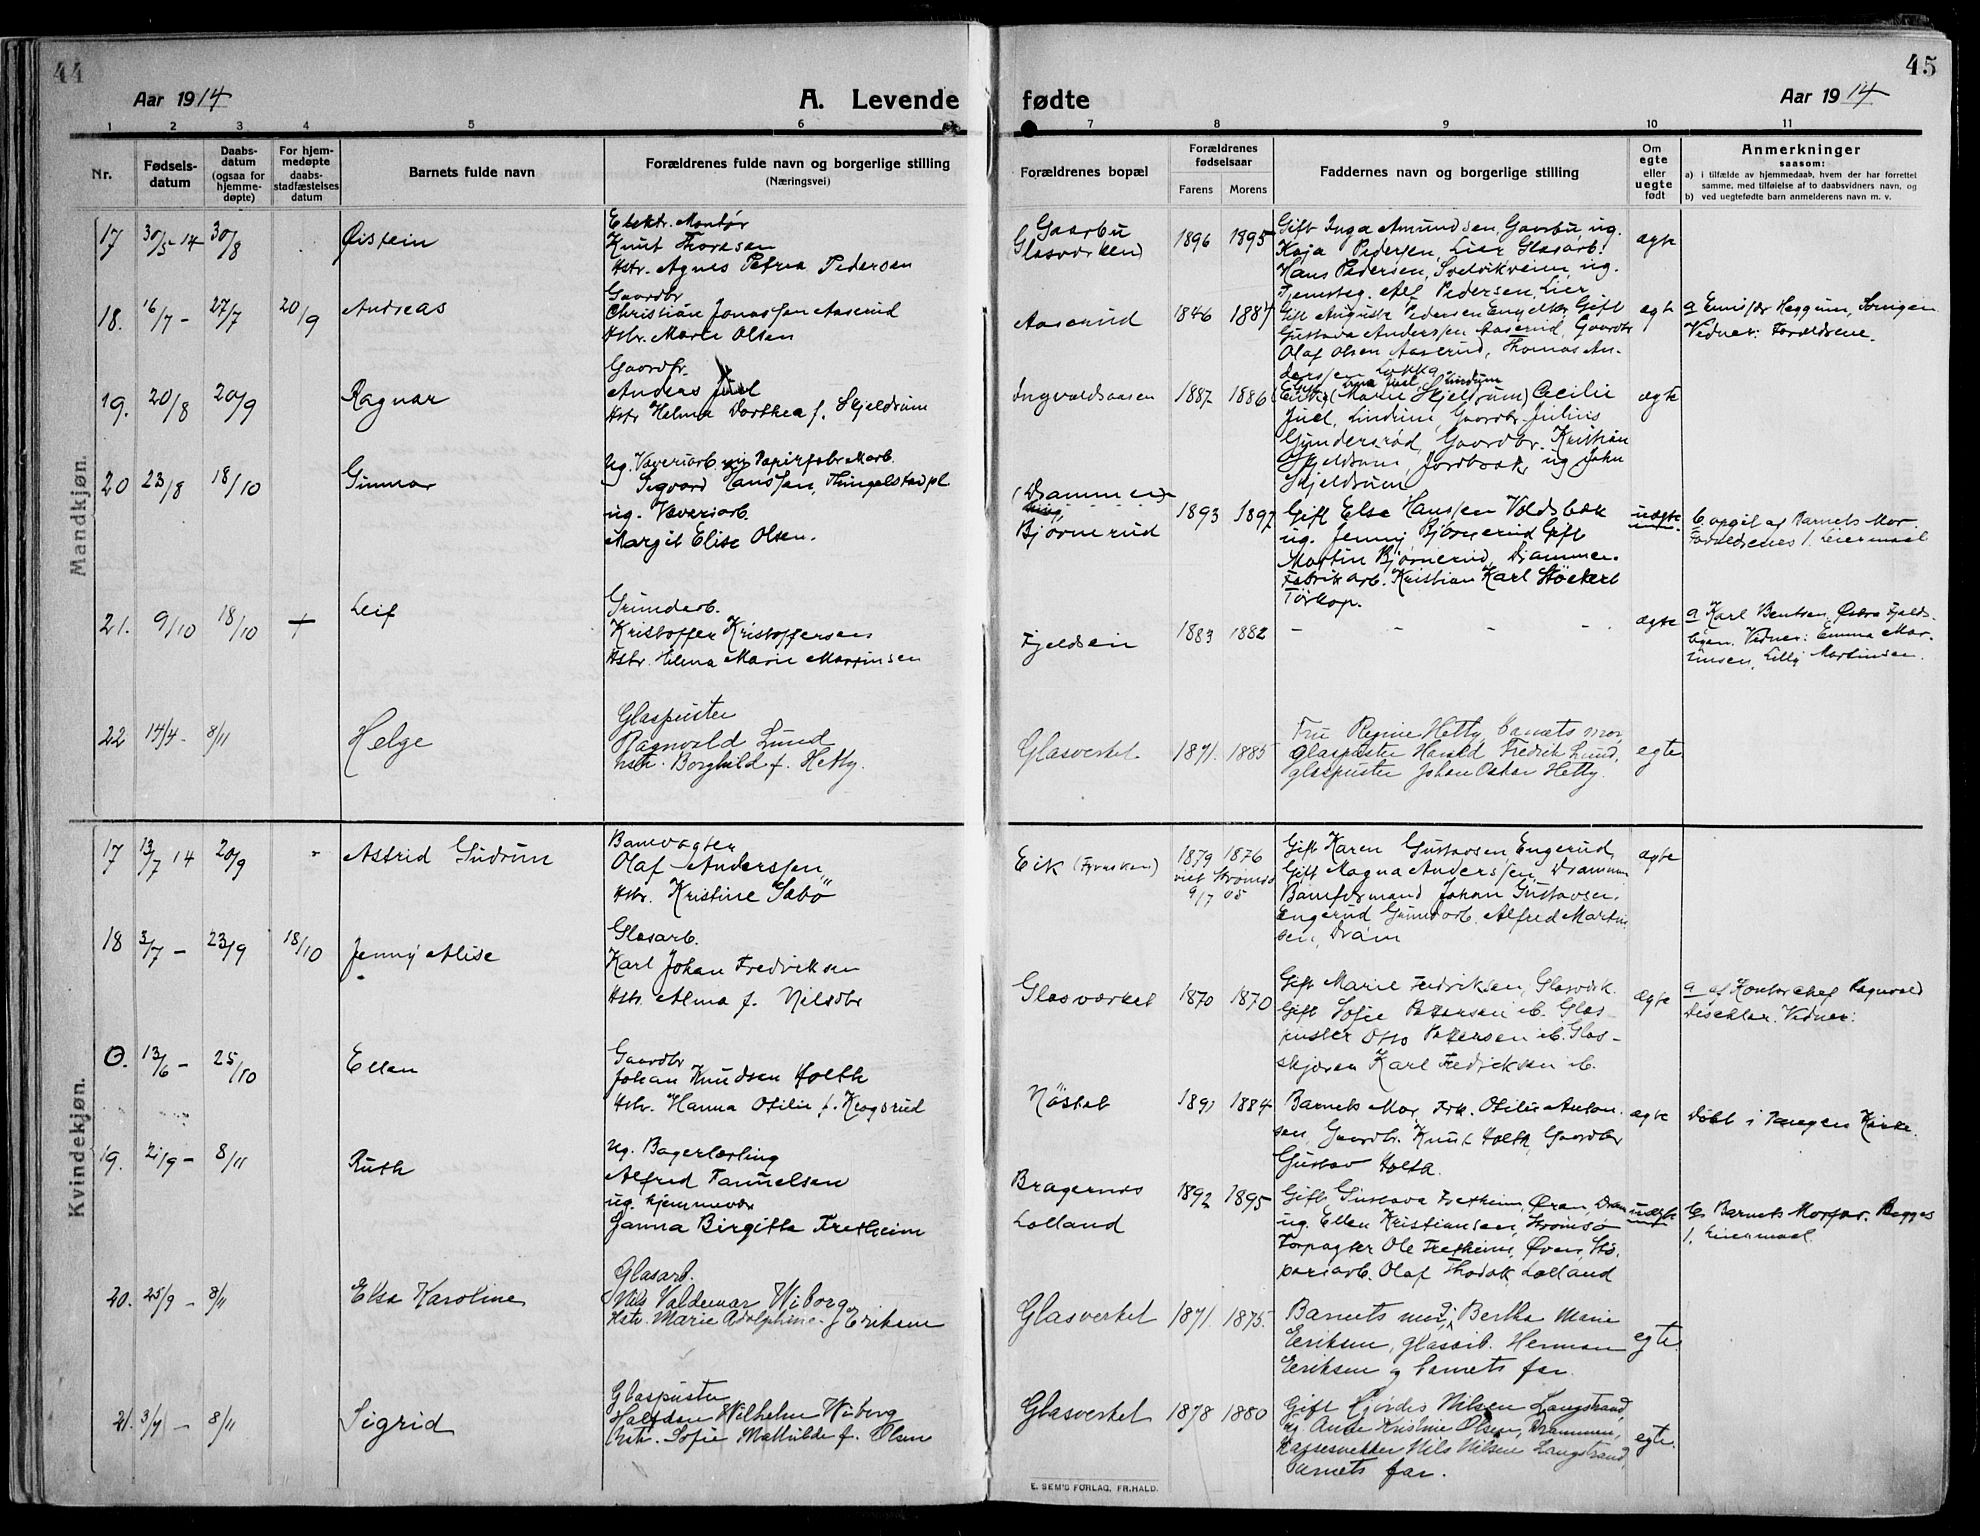 44
Aar 1914
A. Levende
1 2 3 4 5 6
Nr.
Fødsels-
datum
Daabs-
datum
(ogsaa for
hjemme-
døpte)
For hjem-
medøpte
daabs-
stadfæstelses
datum
Barnets fulde navn
Forældrenes fulde navn og borgerlige stilling
(Næringsvei)
Mandkjøn.
17 30/5-14 30/8 Øistein
Elektr. Montør
Knut Thoresen
Hstr. Agnes Petra Pedersen
18. 16/7 - 27/7 20/9 Andreas
Gaardbr
Christian Jonassen Aaserud
Hstr. Marie Olsen
19. 20/8 20/9 Ragnar
Gaardbr.
Anders Juel
Hstr Helma Dorthea f. Skjeldrum
20 23/8 18/10 Gunnar
Ug. Væveriarb. Papirfabr. Marb.
Sigvard Hanssen, Thingelstadpl
ug. Væveriarb.
Margit Elise Olsen.
21. 9/10 18/10 + Leif
Grundarb.
Kristoffer Kristoffersen
Hstr. Helma Marie Martinsen
22 14/4 - 8/11 Helge
Glaspuster
Ragnvald Lund
hstr. Borghild f. Hetty.
Kvindekjøn.
17 13/7 14 20/9 Astrid Gudrun
Banevogter
Olaf Anderssen
Hstr. Kristine Sabö
18 3/7 - 23/9 18/10 Jenny Alise
Glasarb.
Karl Johan Fredriksen
Hstr. Alma f. Nilsdtr
0. 13/6 - 25/10 Ellen
Gaardbr
Johan Knudsen Holth
Hstr. Hanna Otilie f. Krogsrud
19. 21/9 - 8/11 Ruth
Ug. Bagerlærling
Alfred Fanuelsen
ug. hjemmevær
Janna Birgitta Fretheim
20. 25/9 - 8/11 Elsa Karoline
Glasarb.
Nils Valdemar Wiborg
Hstr. Marie Adolphine f. Eriksen
21. 3/9 - 8/11 Sigrid
Glaspuster
Halfdan Wilhelm Wiborg
hstr. Sofie Mathilde f. Olsen
45
fødte
Aar 1914
7 8 9 10 11
Forældrenes bopæl
Forældrenes
fødselsaar
Farens Morens
Faddernes navn og borgerlige stilling
Om
egte
eller
uegte
født
Anmerkninger
saasom:
a) i tilfælde av hjemmedaab, hvem der har forrettet
samme, med tilføielse af to daabsvidners navn, og
b) ved uegtefødte barn anmelderens navn m. v.
Gaarbu
Glasværken) 1896 1895
Gift Inga Amundsen, Gaarbu, ug.
Kaja Pedersen, Lier Glasarb.
Hans Pedersen, Svelvikveien, ug.
Tjenesteg. Alf Pedersen, Lier
ægte
Aaserud 1846 1887
Gift Auguste Pedersen Gift
Gustava Anderssen Aaserud, Gaardbr
Olaf Olsen Aaserud, Thomas An-
derssen Løkka
ægte
a Emissær Heggum,
Vidner: Forældrene.
Ingvaldsaasen 1887 1886
(Marie Skjeldrum) Cecilie
Juel, Lindrum, Gaardbr. Julius
Gundersrød, Gaardbr. Kristian
Skjeldrum, ug John
Skjeldrum
ægte
(Drammen)
Bjørnerud 1893 1897
Gift Else Hanssen Voldsbæk
ug. Jenny Bjørnerud Gift
Martin Bjørnerud, Drammen.
Fabrikarb. Kristian Karl Støckert
Tørkop.
uægte
b opgit af Barnets Mor.
Forældrenes 1. Leiermaal
Fjeldsein 1883 1882
- - - -
ægte
a Karl Bentsen, Østre Fjelds-
byen. Vidner: Emma Mar-
tinsen, Lilly Martinsen.
Glasverket 1871. 1885
Fru Regine Hetty, barnets mor,
glaspuster Harald Fredrik Lund,
glaspuster Johan Oskar Hetty.
egte
Eik 1879 1876
viet Strømsø
9/7 05
Gift Karen Gustavsen, Engerud,
Gift Magna Anderssen, Drammen
Baneformand Johan Gustavsen,
Engerud Grundarb. Alfred Martin
sen, Dram
ægte
Glasværket 1870 1870
Gift Marie Fredriksen, Glasværk.
Gift Sofie Pettersen ib. Glas-
puster Otto Pettersen ib. Glas-
skjærer Karl Fredriksen ib.
ægte
a af Kontorchef Ragnvald
Vidner:
Nøsteb 1891 1884
Barnets Mor, Frk. Otilie Anton.
sen, Gaardbr. Knut Holth, Gaardbr
Gustav Holth.
ægte
Døbt i Tangens Kirke.
Bragernes
Lolland 1892 1895
Gift Gustava Fretheim, Øren, Dram
ug. Ellen Kristiansen, Strømsø
Forpagter Ole Fretheim, Øren,
Olaf Lolland
uægte
b. Barnets Morfar. Begges
1. Leiermaal.
Glasverket 1871. 1875.
Barnets mor, Bertha Marie
Eriksen, glasarb. Herman
Eriksen og barnets far.
egte.
Glasverket 1878 1880
Gift Hjørdis Nilsen Langstrand,
ug. Anne Kristine Olsen, Drammen,
Nils Nilsen Langstrand,
barnets far.
egte.
E. SEM'S FORLAG, FR.HALD.